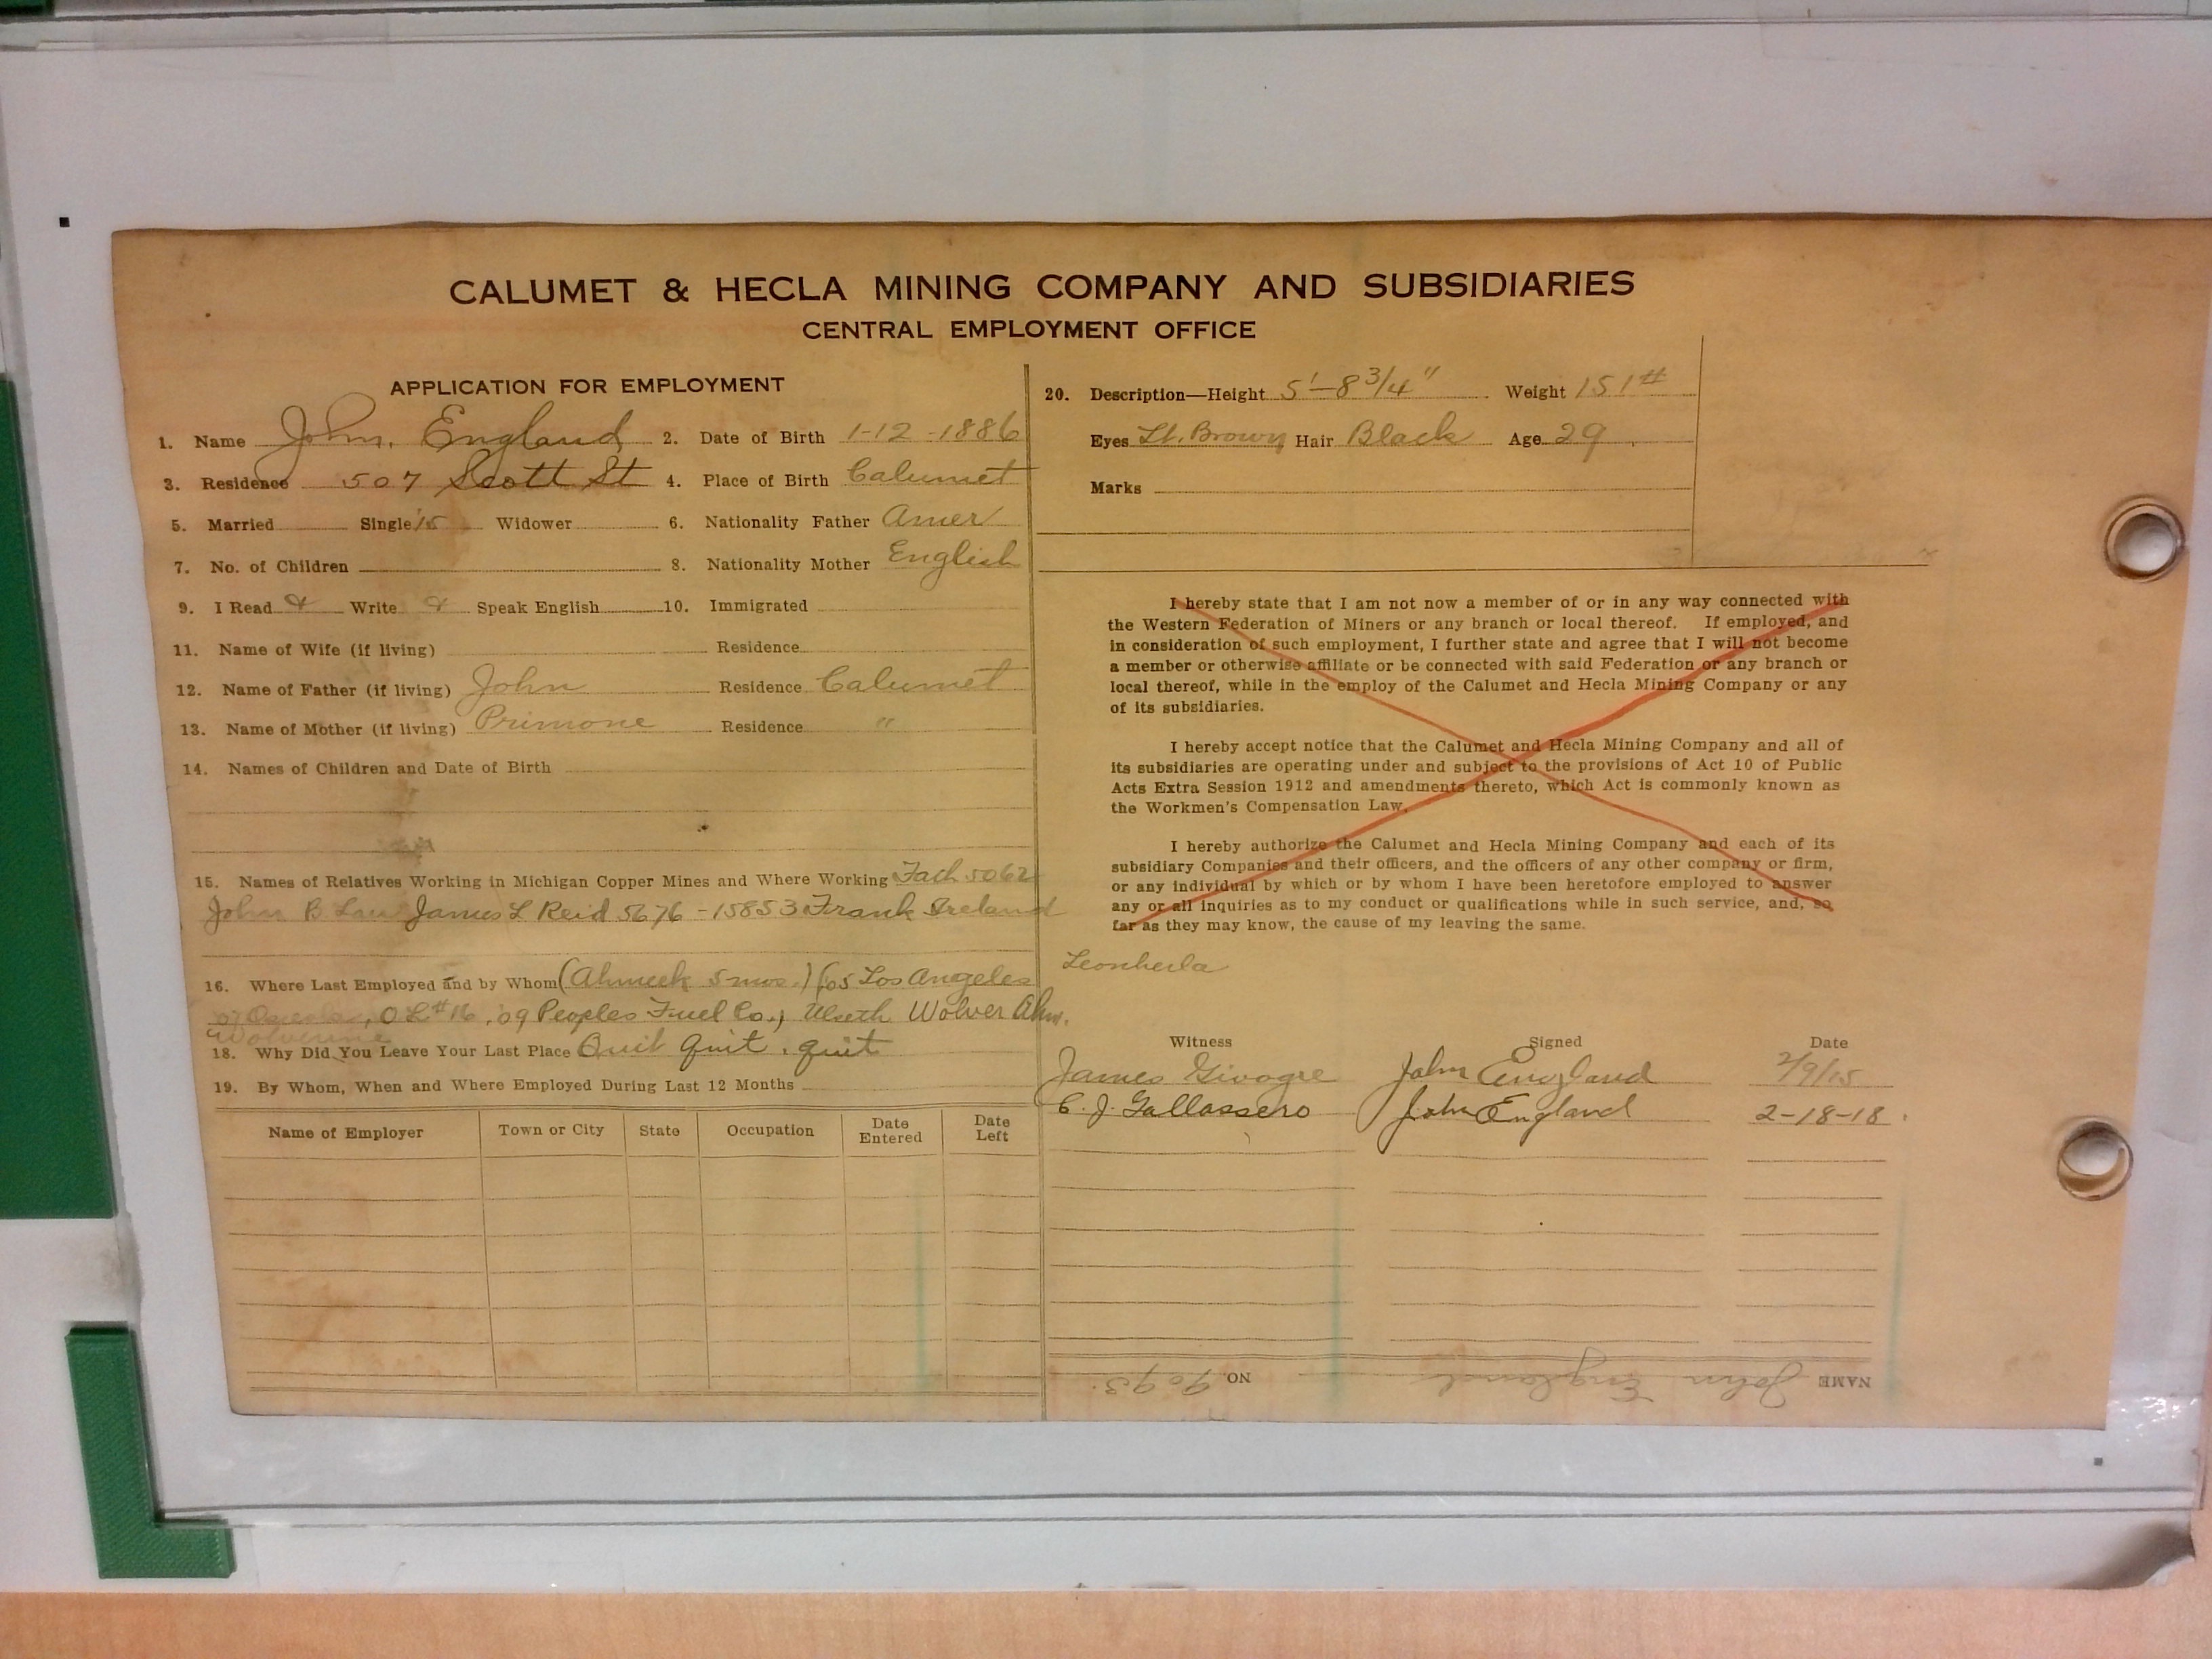 CALUMET & HECLA MINING COMPANY AND SUBSIDIARIES
CENTRAL EMPLOYMENT OFFICE
APPLICATION FOR EMPLOYMENT
1. Name John. England 2. Date of Birth 1-12-1886
3. Residence 507 Scott St 4. Place of Birth Calumet
5. Married Single '15 Widower 6. Nationality Father Amer
7. No. of Children 8. Nationality Mother English
9. I Read Write Speak English 10. Immigrated
11. Name of Wife (if living) Residence
12. Name of Father (if living) John Residence Calumet
13. Name of Mother (if living) Primone Residence "
14. Names of Children and Date of Birth
15. Names of Relatives Working in Michigan Copper Mines and Where Working Fath 5062
John B Law James L Reid 5676-15853 Frank Ireland
16. Where Last Employed and by Whom (Ahmeek 5 mos.) ('05 Los Angeles
'07 Osceola, O L #16, '09 Peoples Fuel Co., Ulseth Wolver Ahm.
Wolverine
18. Why Did You Leave Your Last Place Quit quit. quit
19. By Whom, When and Where Employed During Last 12 Months
Name of Employer Town or City State Occupation Date Entered Date Left
20. Description—Height 5'-8 3/4" Weight 151#
Eyes Lt. Brown Hair Black Age 29
Marks
I hereby state that I am not now a member of or in any way connected with
the Western Federation of Miners or any branch or local thereof. If employed, and
in consideration of such employment, I further state and agree that I will not become
a member or otherwise affiliate or be connected with said Federation or any branch or
local thereof, while in the employ of the Calumet and Hecla Mining Company or any
of its subsidiaries.
I hereby accept notice that the Calumet and Hecla Mining Company and all of
its subsidiaries are operating under and subject to the provisions of Act 10 of Public
Acts Extra Session 1912 and amendments thereto, which Act is commonly known as
the Workmen's Compensation Law.
I hereby authorize the Calumet and Hecla Mining Company and each of its
subsidiary Companies and their officers, and the officers of any other company or firm,
or any individual by which or by whom I have been heretofore employed to answer
any or all inquiries as to my conduct or qualifications while in such service, and, so
far as they may know, the cause of my leaving the same.
Witness Signed Date
James John England 2/9/15
C. J. Gallassero John England 2-18-18.
NAME John England NO 9093.